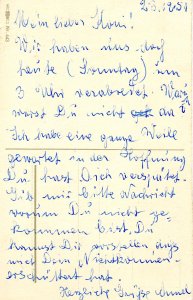 2.8.1951
Mein lieber Koni!
Wir haben uns doch
heute (Sonntag) um
3 Uhr verabredet. Warum
warst Du nicht da?
Ich habe eine ganze Weile
gewartet in der Hoffnung
Du hast Dich verspätet.
Gib mir bitte Nachricht
warum Du nicht ge-
kommen bist. Du
kannst Dir vorstellen dass
mich Dein Nichtkommen
erschüttert hat.
Herzliche Grüße